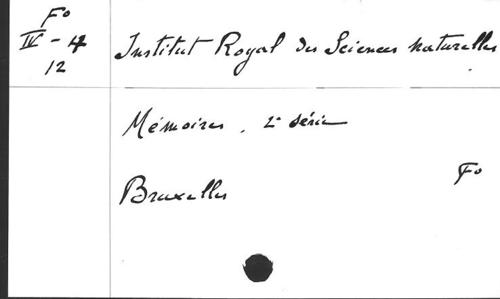 Fº
IV - 4
12
Institut Royal des Sciences naturelles
Mémoires, 2e série
Bruxelles
Fº